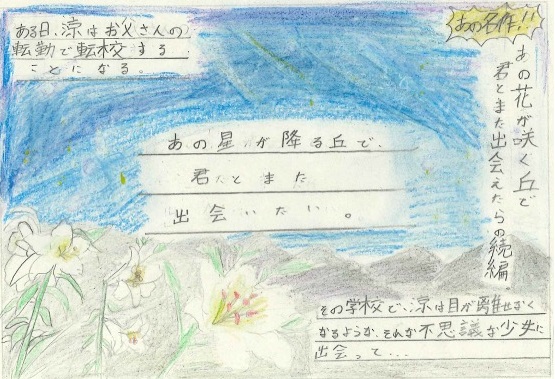 あの名作!!
あの花が咲く丘で
君とまた出会えたらの続編.
ある日、涼はお父さんの
転勤で転校する
ことになる。
あの星が降る丘で、
君とまた
出会いたい。
その学校で、涼は目が離せなく
なるような、そんな不思議な少女に
出会って...